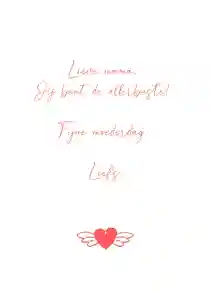 Lieve mama,
Jij bent de allerbeste!
Fijne moederdag
Liefs